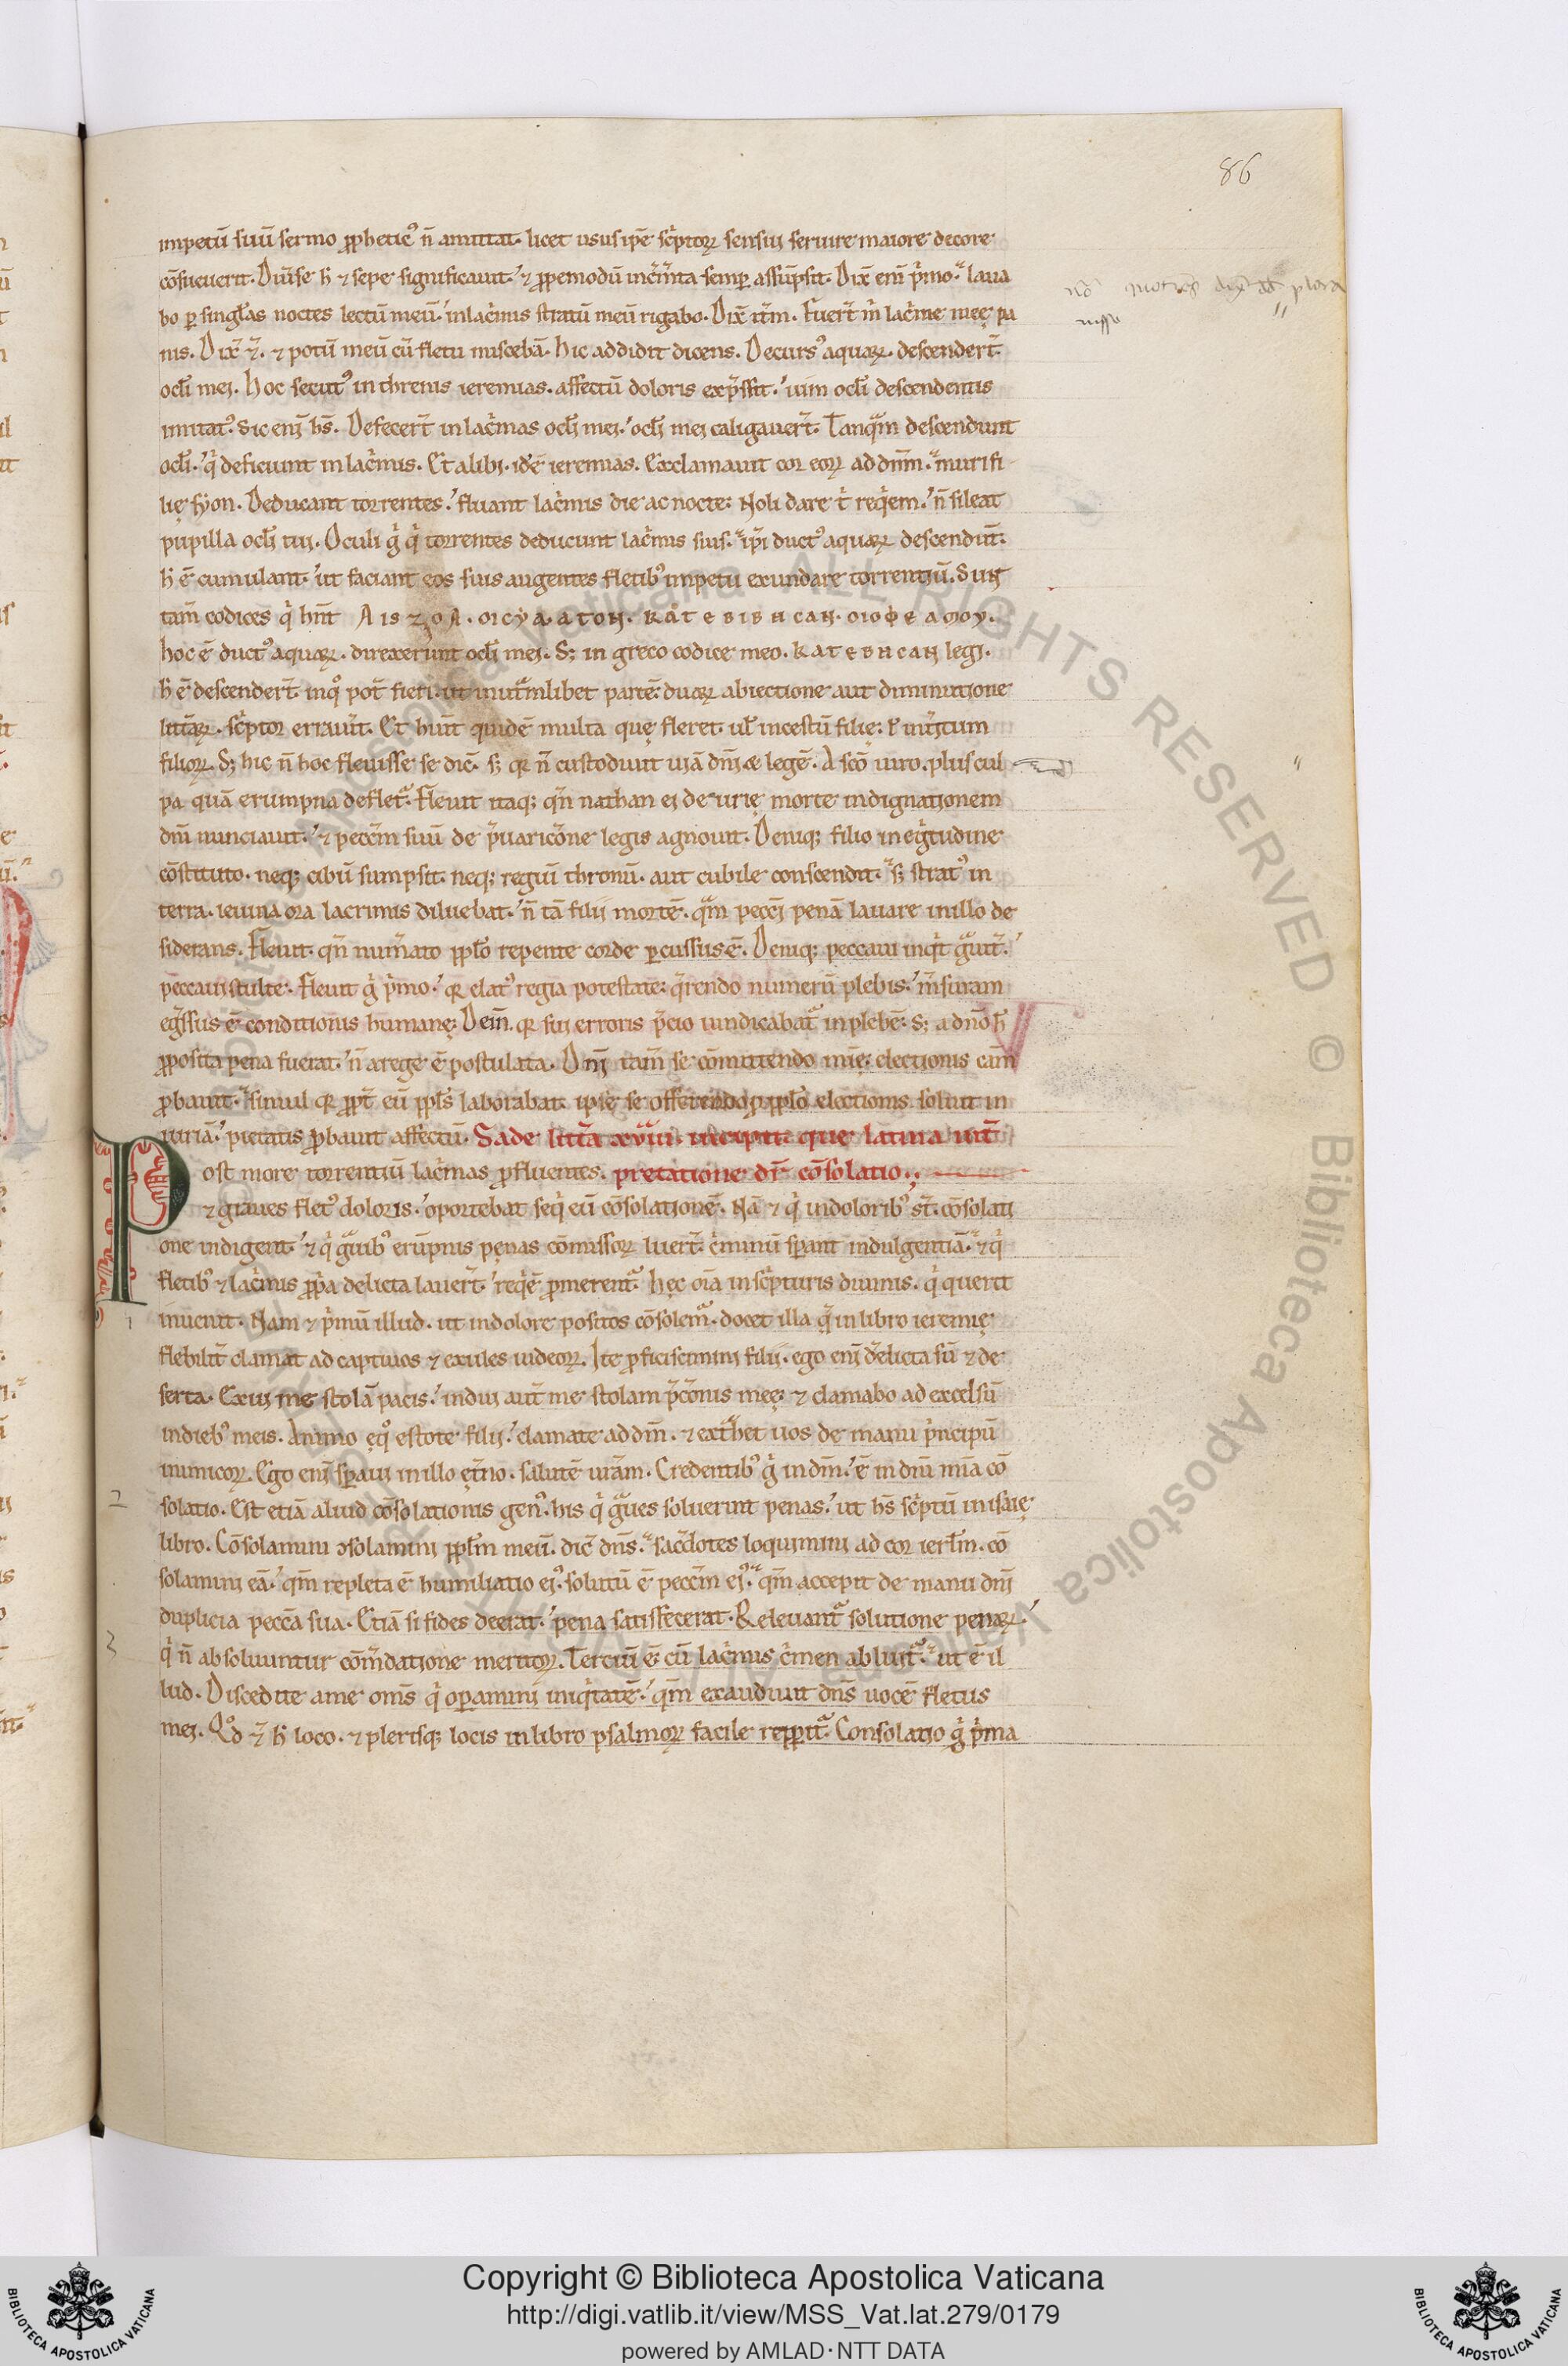 86
impetū suū sermo ꝓphetic᷒ n̄ amittat. licet usus ipē sc͛ptoꝝ sensui seruire maiore decore
cōsueuerit. Diu͛se h̄ ⁊ sepe significauit. ⁊ ꝓpemodū inc͛m͛ta semꝑ assūpsit. Dix̄ eni͂ p͛mo. laua
bo per singl̄as noctes lectū meū. in lac͛mis stratū meū rigabo. Dix̄ it͛m. Fuer̄t m͛ lac͛me meę pa
nis. Dix̄ ⁊͛. ⁊ potū meū cū fletu miscebā. Hic addidit dicens. Decurs᷒ aquaꝝ. descender̄t
ocl̄i mei. Hoc secut᷒ in threnis ieremias. affectū doloris exp͛ssit. uim ocl̄i descendentis
imitat᷒. Sic eni͂ hēs. Defecer̄t in lac͛mas ocl̄i mei. ocl̄i mei caligauer̄t. Tanq̄m descendunt
ocl̄i. q͛ deficiunt in lac͛mis. Et alibi. idē ieremias. Exclamauit cor eoꝝ ad dn̄m. muri fi
lię syon. Deducant torrentes. fluant lac͛mis die ac nocte. Noli dare t͛ req͛em. n̄ sileat
pupilla ocl̄i tui. Oculi g͛ q͛ torrentes deducunt lac͛mis suis. ip̄i duct᷒ aquaꝝ descendūt.
h̄ ē cumulant. ut faciant eos suis augentes fletib᷒ impetu exundare torrentiū. Sunt
tam̄ codices q͛ hn̄t ΔΙΕΖΟΔ. ΟΙCΥΔΑΤΟΝ. ΚΑΤΕΒΙΒΗCΑΝ. ΟΙΟΦΕΑΜΟΥ.
hoc ē duct᷒ aquaꝝ. direxerunt ocl̄i mei. S; in greco codice meo. ΚΑΤΕΒΗCΑΝ legi.
h̄ ē descender̄t. inq᷒ pot̄ fieri. ut in ut͛mlibet partē duaꝝ abiectione aut diminutione
litt͛aꝝ. sc͛ptor erraũit. Et hūit quidē multa quę fleret. ul̄ incestū filie. ł int͛itum
filioꝝ. S; hic n̄ hoc fleuisse se dic̄. s; qꝛ n̄ custodiunt uiā dn̄i ⁊ legē. A sc̄o uiro. plus cul
pa quā erumpna deflet᷑. Fleuit itaq; qn̄ nathan ei de urię morte indignationem
dn̄i nunciauit. ⁊ pecc̄m suū de p͛uaricōne legis agnouit. Deniq; filio in eg͛tudine
cōstituto. neq; cibū sumpsit. neq; regiū thronū. aut cubile conscendit. s; strat᷒ in
terra. ieiuna ora lacrimis diluebat. n̄ tā filii mortē. q̄m pecci͂ penā lauare in illo de
siderans. Fleuit. qn̄ num͛ato ppl̄o repente corde ꝑcussus ē. Deniq; peccaui inq͛t g͛uit͛.
peccaui stulte. Fleuit g͛ p͛mo. qꝛ elat᷒ regia potestate. q͛rendo numerū plebis. m̄suram
eg͛ssus ē conditionis humanę. Dein̄. qꝛ sui erroris p͛cio uindicabat᷑ in plebē. S; a dn̄o h̄
ꝓposita pena fuerat. n̄ a rege ē postulata. Dn̄i tam̄ se cōmittendo mię. electionis cām
ꝓbauit. simul qꝛ ꝓpt͛ eū ppl̄s laborabat. ipse se offerendo ꝓ ppl̄o. electionis soluit in
iuriā. pietatis ꝓbauit affectū. Sade litt͛a xviii. incipit que latina int͛
Post more torrentiū lac͛mas ꝓfluentes. pretatione dr̄ cōsolatio.
⁊ graues flet᷒ doloris. oportebat seq͛ eū cōsolationē. Nā ⁊ q͛ in dolorib᷒ st̄. cōsolati
one indigent. ⁊ q͛ g͛uib᷒ erūpnis penas cōmissoꝝ luer̄t. c͛minū sperant indulgentiā. ⁊ q͛
fletib᷒ ⁊ lac͛mis ꝓpͥa delicta lauer̄t. req͛ē ꝓmerent᷑. Hęc oīa in sc͛pturis diuinis. q͛ querit
inuenit. Nam ⁊ p͛mū illud. ut in dolore positos cōsolem᷑. docet illa q̄ in libro ieremię
flebilit͛ clamat ad captiuos ⁊ exules iudeoꝝ. Ite ꝓficiscimini filii. ego eni͂ d͛elicta sū ⁊ de
serta. Exui me stolā pacis. indui aut̄ me stolam p͛cōnis meę. ⁊ clamabo ad excelsū
in dieb᷒ meis. Animo ęq᷒ estote filii. clamate ad dn̄m. ⁊ ext͛het uos de manu p͛ncipū
inimicoꝝ. Ego eni͂ sperauī in illo ęt͛no. salutē ur̄am. Credentib᷒ g͛ in dn̄m. ē in dn̄i mīa cō
solatio. Est etiā aliud cōsolationis gen᷒. his q͛ g͛ues soluerint penas. ut hēs sc͛ptū in isaię
libro. Cōsolamini ↄsolamini ppl̄m meū. dic̄ dn̄s. sac͛dotes loquimini ad cor ierl̄m. cō
solamini eā. qm̄ repleta ē humiliatio ei᷒. solutū ē pecc̄m ei᷒. qm̄ accepit de manu dn̄i
duplicia peccā sua. Etiā si fides deerat. pena satisfecerat. Releuant᷑ solutione penaꝝ.
q͛ n̄ absoluuntur cōm͛datione meritoꝝ. Terciū ē cū lac͛mis c͛men abluit᷑. ut ē il
lud. Discedite a me oms̄ q͛ operamini iniq͛tatē. qm̄ exaudiuit dn̄s uocē fletus
mei. Qd̄ ⁊͛ h̄ loco. ⁊ plerisq; locis in libro psalmoꝝ facile repperit᷑. Consolatio g͛ p͛ma
1
2
3
Copyright © Biblioteca Apostolica Vaticana
http://digi.vatlib.it/view/MSS_Vat.lat.279/0179
powered by AMLAD·NTT DATA
BIBLIOTECA APOSTOLICA VATICANA
BIBLIOTECA APOSTOLICA VATICANA